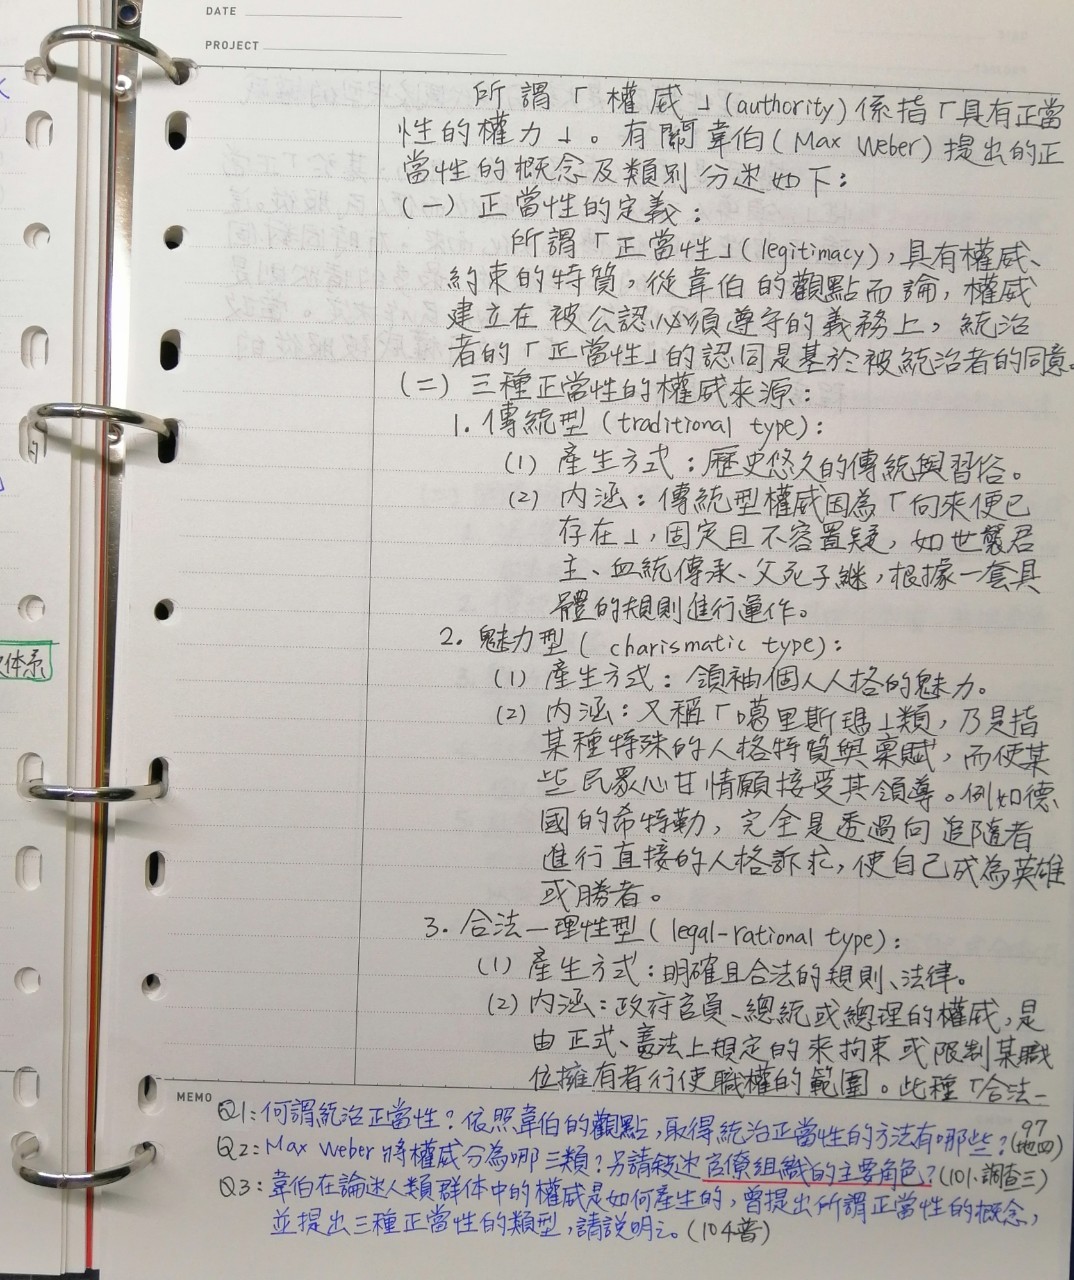 DATE
PROJECT
所謂「權威」(authority)係指「具有正當
性的權力」。有關韋伯(Max Weber)提出的正
當性的概念及類別分述如下:
(一)正當性的定義:
所謂「正當性」(legitimacy),具有權威、
約束的特質,從韋伯的觀點而論,權威
建立在被公認必須遵守的義務上,統治
者的「正當性」的認同是基於被統治者的同意。
(二)三種正當性的權威來源:
1.傳統型(traditional type):
(1)產生方式:歷史悠久的傳統與習俗。
(2)內涵:傳統型權威因為「向來便已
存在」,固定且不容置疑,如世襲君
主、血統傳承、父死子繼,根據一套具
體的規則進行運作。
2.魅力型(charismatic type):
(1)產生方式:領袖個人人格的魅力。
(2)內涵:又稱「噶里斯瑪」類,乃是指
某種特殊的人格特質與稟賦,而使某
些民眾心甘情願接受其領導。例如德
國的希特勒,完全是透過向追隨者
進行直接的人格訴求,使自己成為英雄
或勝者。
3.合法—理性型(legal-rational type):
(1)產生方式:明確且合法的規則、法律。
(2)內涵:政府官員、總統或總理的權威,是
由正式、憲法上規定的來拘束或限制某職
位擁有者行使職權的範圍。此種「合法—
体系
MEMO
Q1:何謂統治正當性?依照韋伯的觀點,取得統治正當性的方法有哪些?(97地四)
Q2:Max Weber將權威分為哪三類?另請敍述官僚組織的主要角色?(101.調查三)
Q3:韋伯在論述人類群体中的權威是如何產生的,曾提出所謂正當性的概念,
並提出三種正當性的類型,請說明之。(104普)